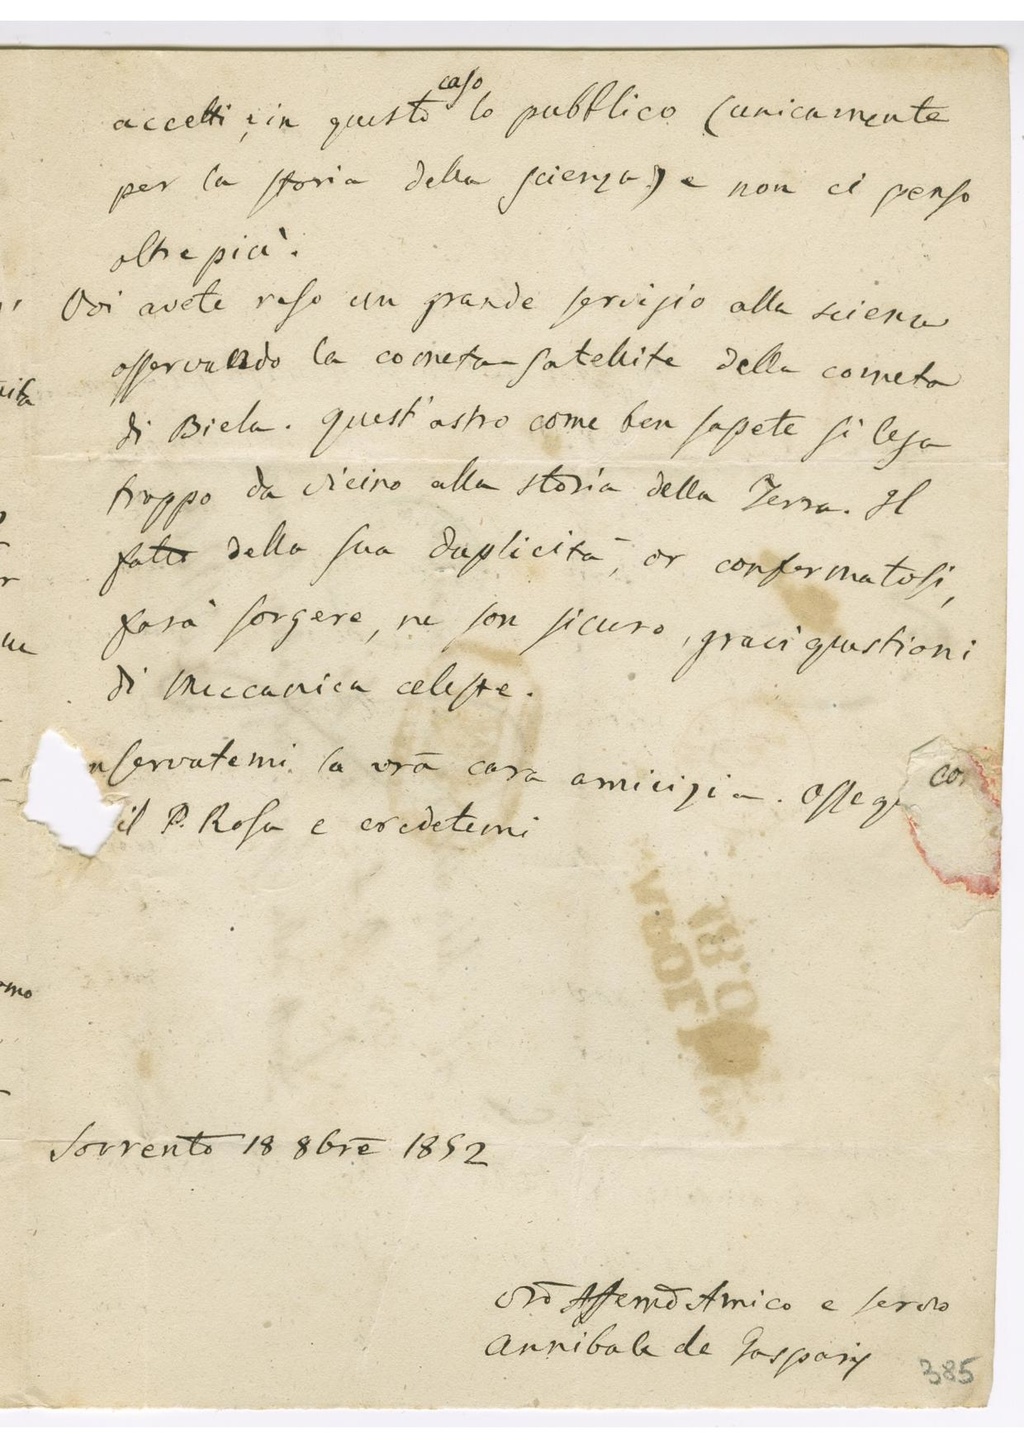 caso
accetti, in questo lo pubblico (unicamente
per la storia della scienza) e non ci penso
oltre più.
Voi avete reso un grande servizio alla scienza
osservando la cometa-satellite della cometa
di Biela. Quest'astro come ben sapete si lega
troppo da vicino alla storia della Terra. Il
fatto della sua duplicità, or confermatosi,
farà sorgere, ne son sicuro, gravi quistioni
di Meccanica celeste.
nservatemi la vrā cara amicizia. Osseq
co
il P. Rosa e credetemi
Sorrento 18 8brē 1852
vrō Affemō Amico e servo
Annibale de Gasparis
385